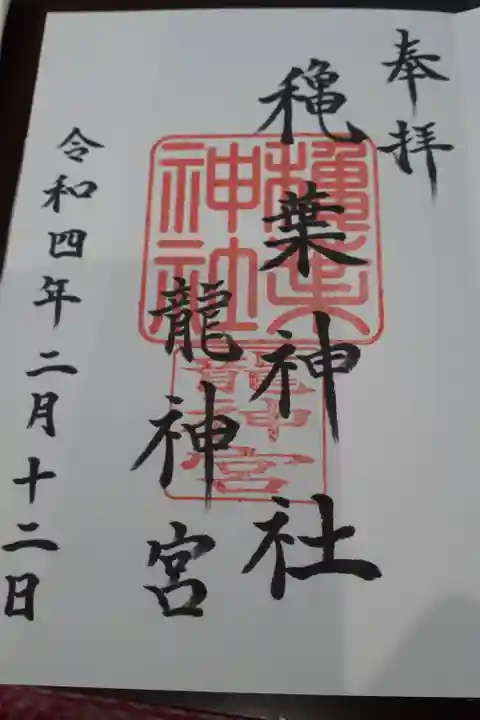 奉拝
穐葉神社
龍神宮
令和四年二月十二日
神社
龍神宮